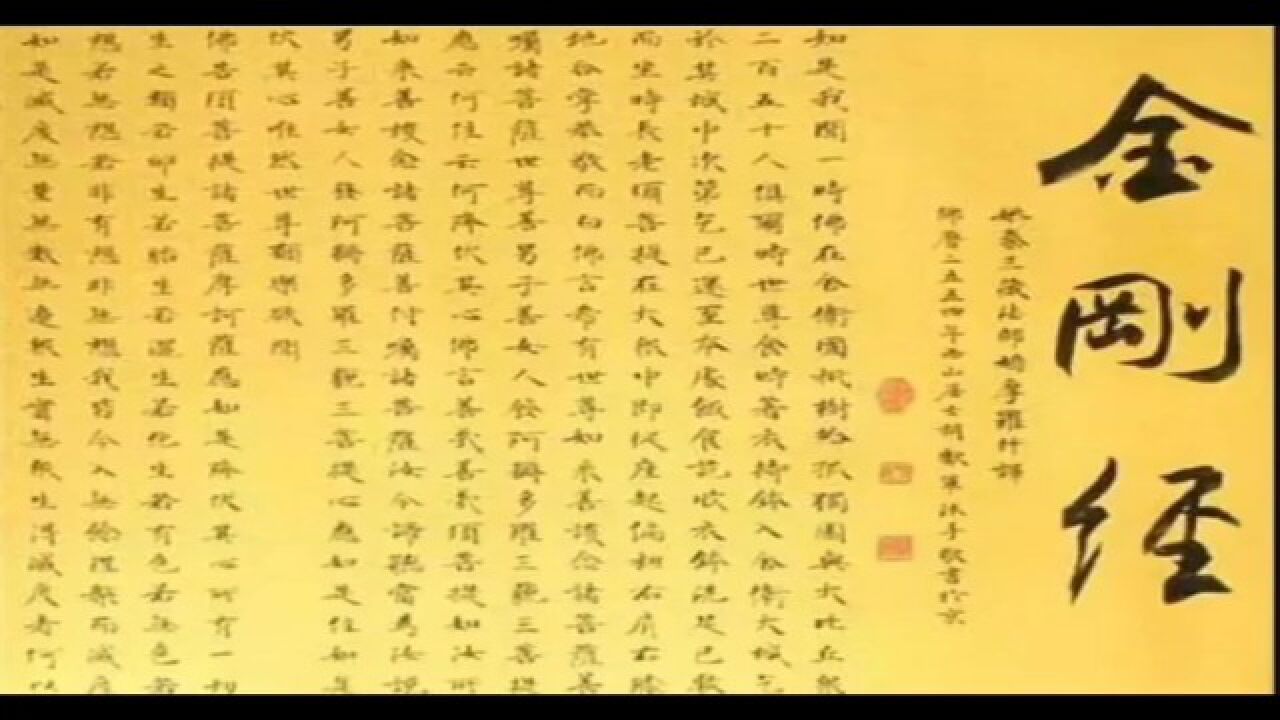 金剛經
姚秦三藏法師鳩摩羅什譯
佛曆二五五四年 山居士胡 軍沐手敬書於京
如是我聞一時佛在舍衛國祇樹給孤獨園與大比丘眾
二百五十人俱爾時世尊食時著衣持鉢入舍衛大城乞
於其城中次第乞已還至本處飯食訖收衣鉢洗足已敷
而坐時長老須菩提在大眾中即從座起偏袒右肩右膝
地合掌恭敬而白佛言希有世尊如來善護念諸菩薩善
囑諸菩薩世尊善男子善女人發阿耨多羅三藐三菩提
應云何住云何降伏其心佛言善哉善哉須菩提如汝所
如來善護念諸菩薩善付囑諸菩薩汝今諦聽當為汝說
男子善女人發阿耨多羅三藐三菩提心應如是住如是
伏其心唯然世尊願樂欲聞
佛告須菩提諸菩薩摩訶薩應如是降伏其心所有一切
生之類若卵生若胎生若濕生若化生若有色若無色若
想若無想若非有想非無想我皆令入無餘涅槃而滅度
如是滅度無量無數無邊眾生實無眾生得滅度者何以